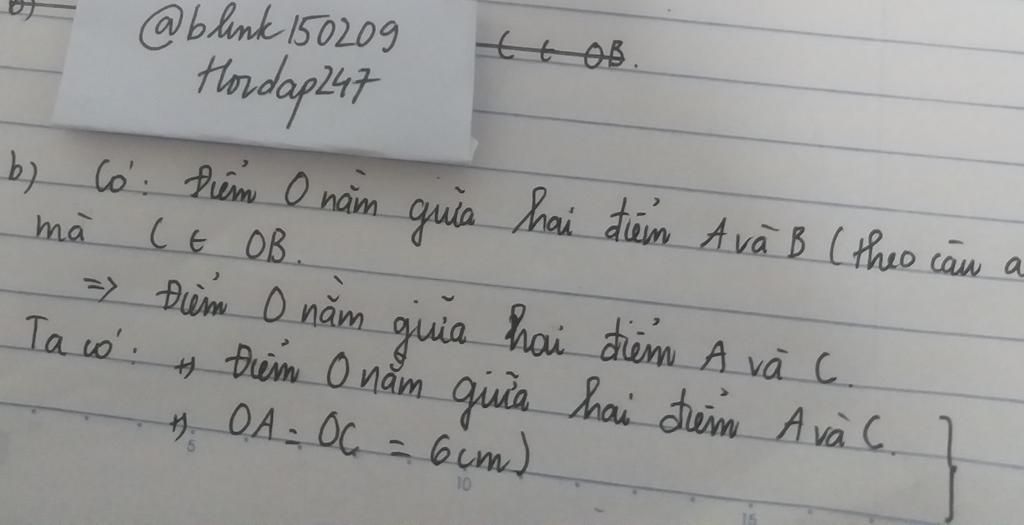 @blink150209
Hoidap247
C ∈ OB.
b) Có: Điểm O nằm giữa hai điểm A và B (theo câu a
mà C ∈ OB.
=> Điểm O nằm giữa hai điểm A và C.
Ta có: +) Điểm O nằm giữa hai điểm A và C.
+) OA = OC = 6cm)
5
10
15